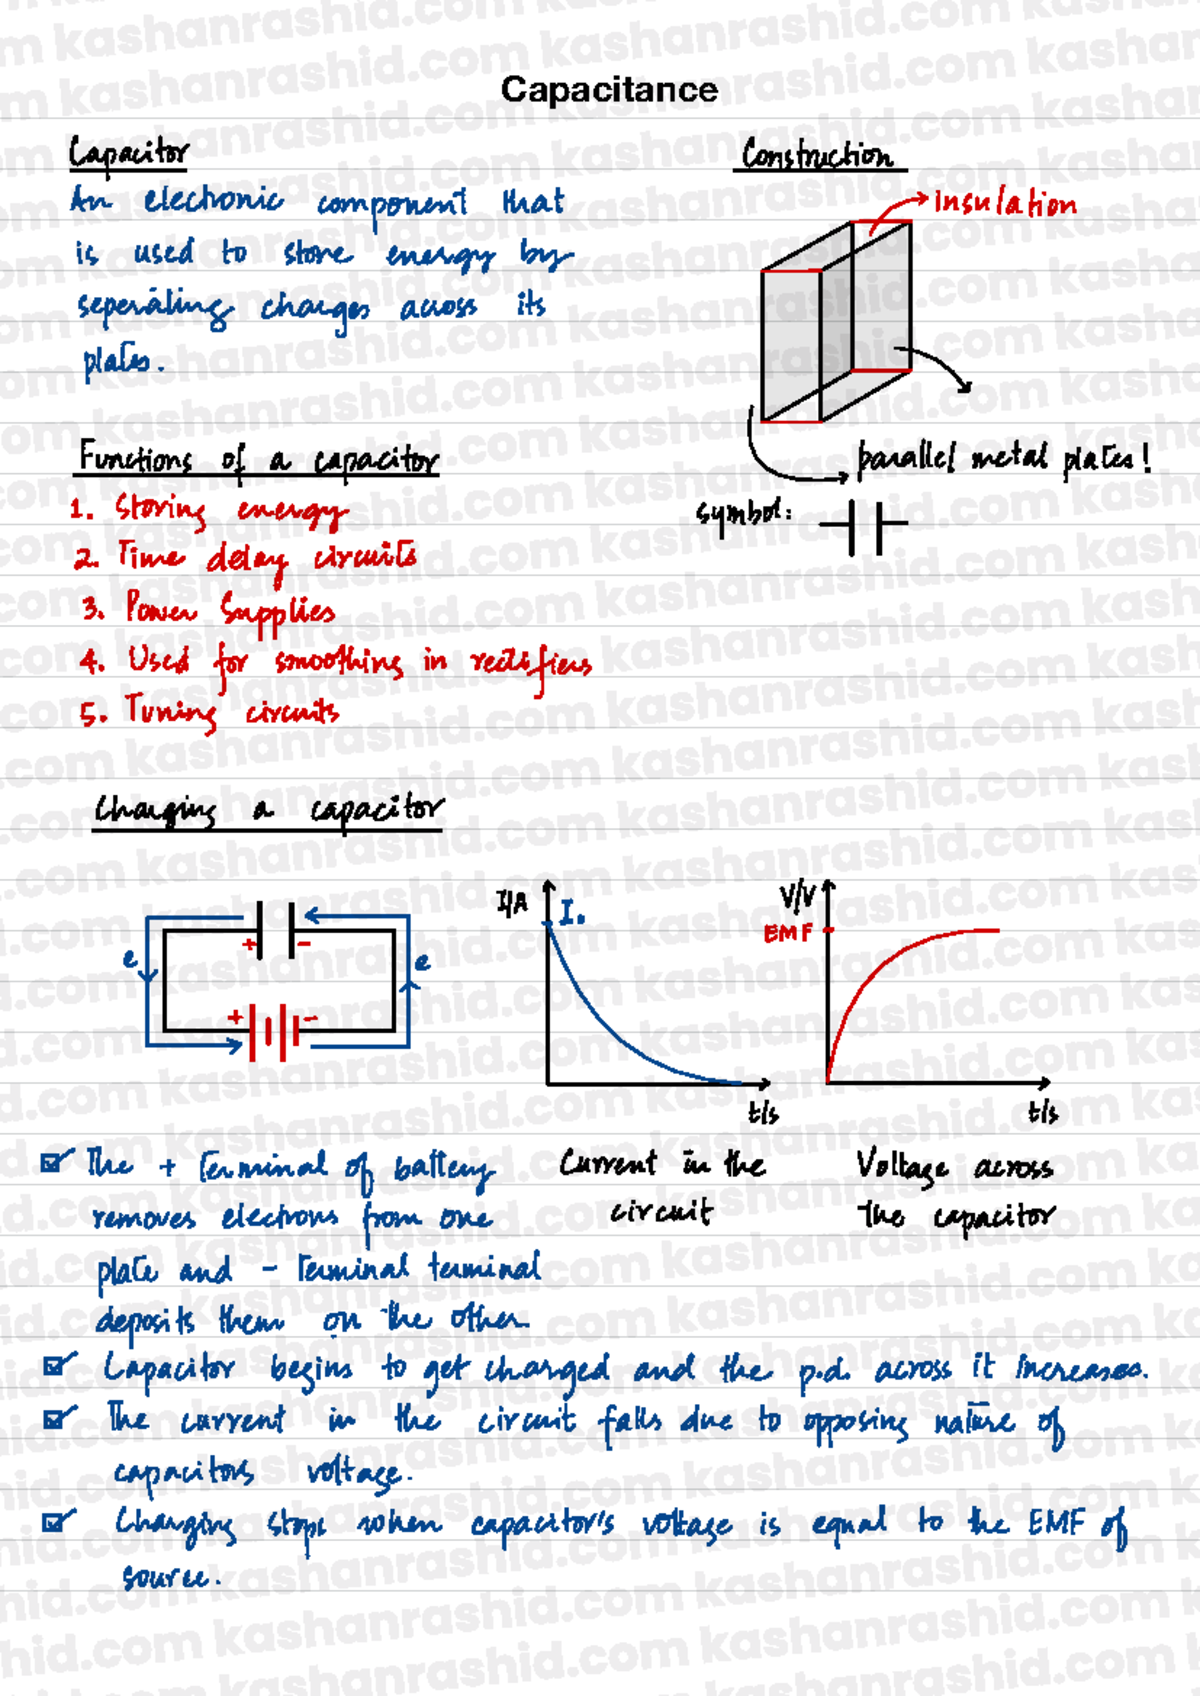 Capacitance
Capacitor
An electronic component that
is used to store energy by
seperating charges across its
plates.
Construction
insulation
parallel metal plates!
symbol:
Functions of a capacitor
1. Storing energy
2. Time delay circuits
3. Power Supplies
4. Used for smoothing in rectifiers
5. Tuning circuits
Charging a capacitor
e
+ -
e
+ -
I/A
I₀
t/s
V/V
EMF
t/s
Current in the
circuit
Voltage across
the capacitor
The + terminal of battery
removes electrons from one
plate and - terminal terminal
deposits them on the other.
Capacitor begins to get charged and the p.d. across it increases.
The current in the circuit falls due to opposing nature of
capacitors voltage.
Charging stops when capacitor's voltage is equal to the EMF of
source.
kashanrashid.com